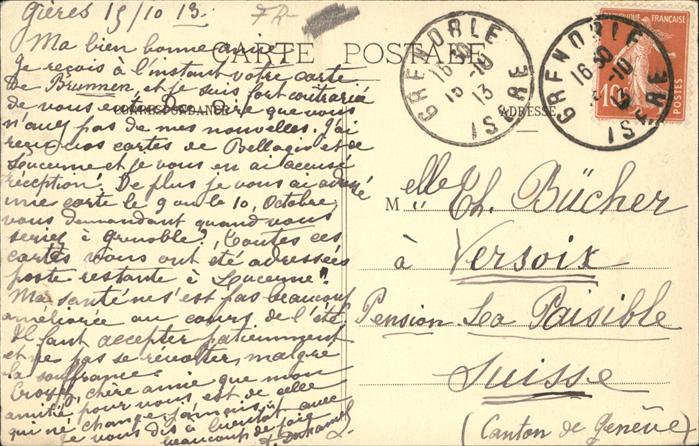 Gières 15/10 13.
Ma bien bonne amie,
CARTE POSTALE
Je reçois à l'instant votre carte
De Brunnen, et je suis fort contrariée
CORRESPONDANCE
de vous entendre dire que vous
n'avez pas de mes nouvelles. J'ai
reçu vos cartes de Bellagio et de
Lucerne et je vous en ai accusé
réception. De plus je vous ai adressé
une carte le 9 ou le 10, Octobre,
vous demandant quand vous
seriez à Grenoble, Toutes ces
cartes vous ont été adressées
poste restante à Lucerne".
Ma santé ne s'est pas beaucoup
améliorée au cours de l'été
Il faut accepter patiemment
et ne pas se révolter, malgré
la souffrance.
Croyez, chère amie que mon
amitié pour vous, est de celle
qui ne change jamais!
Je vous dis à bientôt avec
beaucoup de joie
Duhamel
GRENOBLE
16 30
15 -10
13
ISERE
GRENOBLE
16 30
-10
13
ISERE
REPUBLIQUE FRANÇAISE
10
POSTES
ADRESSE
Melle Ch. Bücher
à Versoix
Pension La Paisible
Suisse
(Canton de Genève)